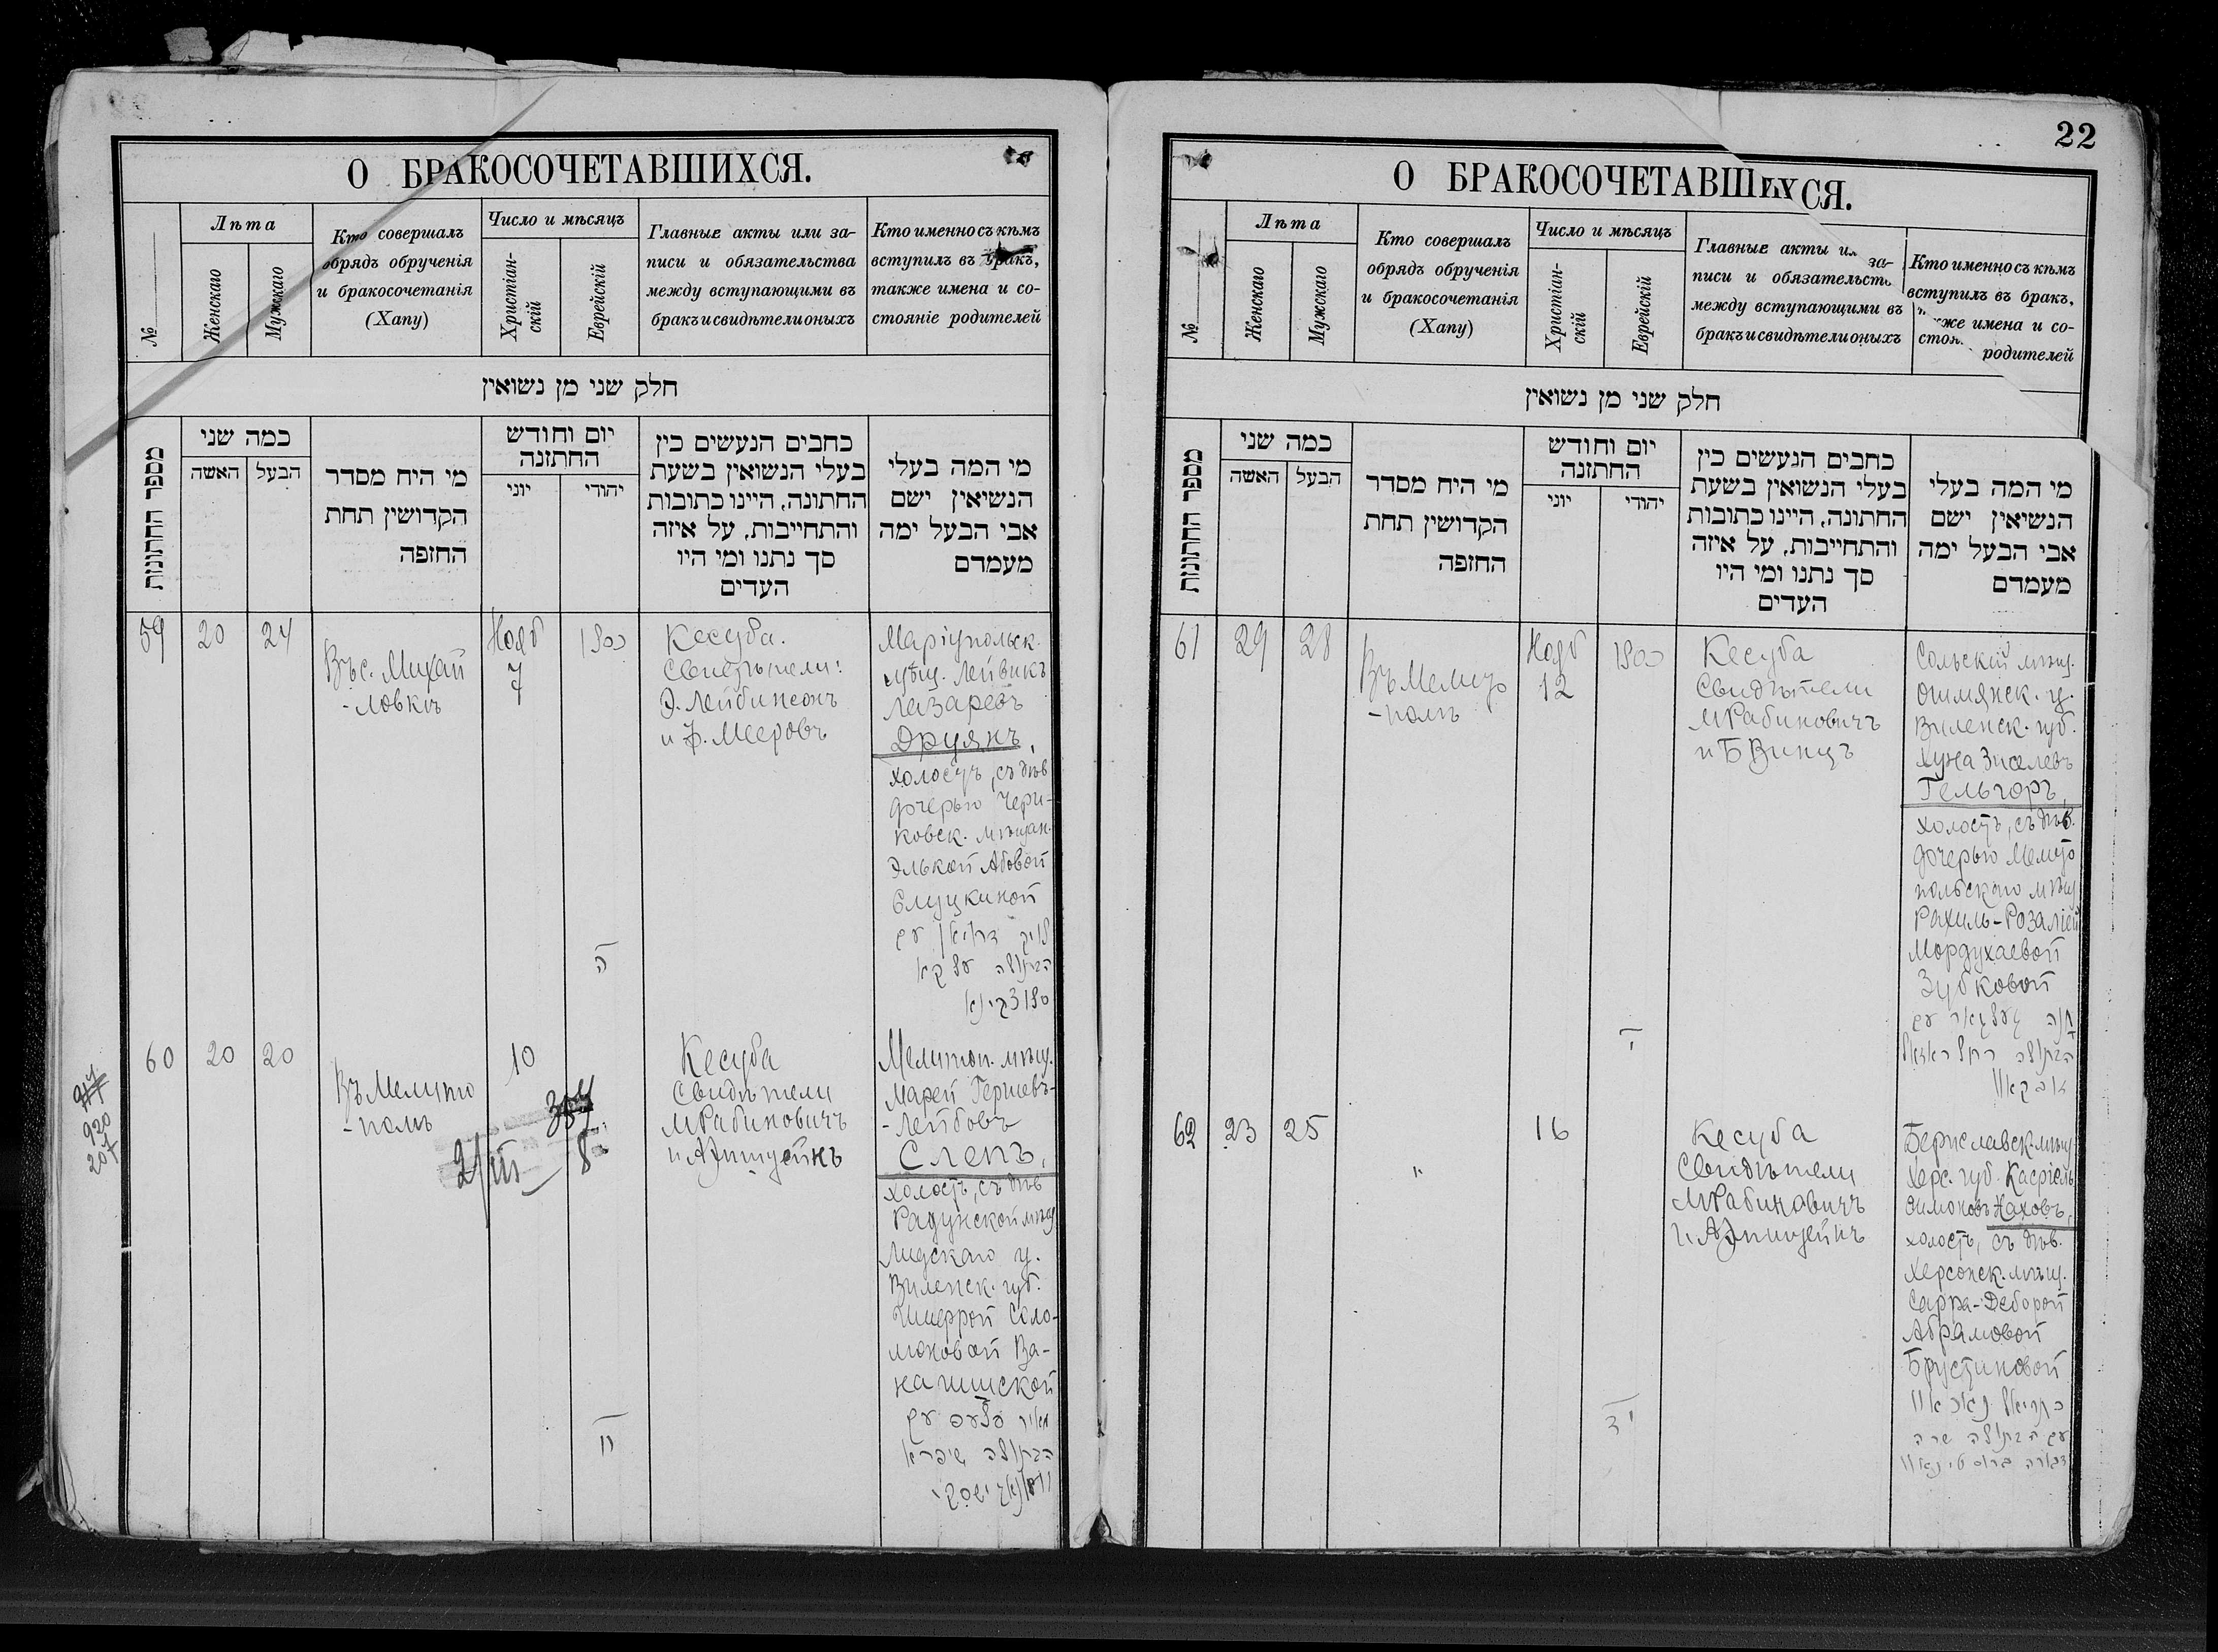 22
О БРАКОСОЧЕТАВШИХСЯ.
№
Лѣта
Женскаго
Мужскаго
Кто совершалъ
обрядъ обрученія
и бракосочетанія
(Хапу)
Число и мѣсяцъ
Христіан-
скій
Еврейскій
Главные акты или за-
писи и обязательства
между вступающими въ
бракъ и свидѣтели оныхъ
Кто именно съ кѣмъ
вступилъ въ бракъ,
также имена и со-
стояніе родителей
חלק שני מן נשואין
מספר החתונות
כמה שני
האשה
הבעל
מי היח מסדר
הקדושין תחת
החופה
יום וחודש
החתונה
יוני
יהודי
כחבים הנעשים כין
בעלי הנשואין בשעת
החתונה, היינו כתובות
והתחייבות, על איזה
סך נתנו ומי היו
העדים
מי המה בעלי
הנשיאין ישם
אבי הבעל ימה
מעמדם
59
20
24
Въ с. Михай
-ловкѣ
Нояб
7
ה
Кесуба.
Свидѣтели:
Э. Лейбинсонъ
и Ф. Мееровъ
Маріупольск.
мѣщ. Лейвикъ
Лазаревъ
Друянъ,
холостъ, съ дѣв
дочерью Чери-
ковск. мѣщан.
Элькой Абовой
Слуцкиной
60
20
20
Въ Мелито
-полѣ
10
ח
Кесуба
Свидѣтели
М Рабиновичъ
Мелитоп. мѣщ.
Лейбовъ
Слепъ,
холостъ, съ дѣв
Радунской мѣщ
Лидскаго у.
Виленск. губ.
Соло-
моновой
920
207
О БРАКОСОЧЕТАВШИХСЯ.
№
Лѣта
Женскаго
Мужскаго
Кто совершалъ
обрядъ обрученія
и бракосочетанія
(Хапу)
Число и мѣсяцъ
Христіан-
скій
Еврейскій
Главные акты и за-
писи и обязательств
между вступающими въ
бракъ и свидѣтели оныхъ
Кто именно съ кѣмъ
вступилъ въ бракъ,
же имена и со-
стоя родителей
חלק שני מן נשואין
מספר החתונות
כמה שני
האשה
הבעל
מי היח מסדר
הקדושין תחת
החופה
יום וחודש
החתונה
יוני
יהודי
כחבים הנעשים כין
בעלי הנשואין בשעת
החתונה, היינו כתובות
והתחייבות, על איזה
סך נתנו ומי היו
העדים
מי המה בעלי
הנשיאין ישם
אבי הבעל ימה
מעמדם
61
29
28
Въ Мелито
-полѣ
Нояб
12
י
Кесуба
Свидѣтели
М Рабиновичъ
и Б Винцъ
Сольскій мѣщ.
Ошмянск. у.
Виленск. губ.
Хуна Зиселевъ
Гельгоръ,
холостъ, съ дѣв.
дочерью Мелито
польскаго мѣщ
Рахиль-Розаліей
Мордухаевой
Зубковой
62
23
25
"
16
יד
Кесуба
Свидѣтели
М Рабиновичъ
Бериславск. мѣщ
Херс. губ. Касріель
Симоновъ Наховъ,
холостъ, съ дѣв.
Херсонск. мѣщ.
Сарра-Деборой
Абрамовой
Брустиновой